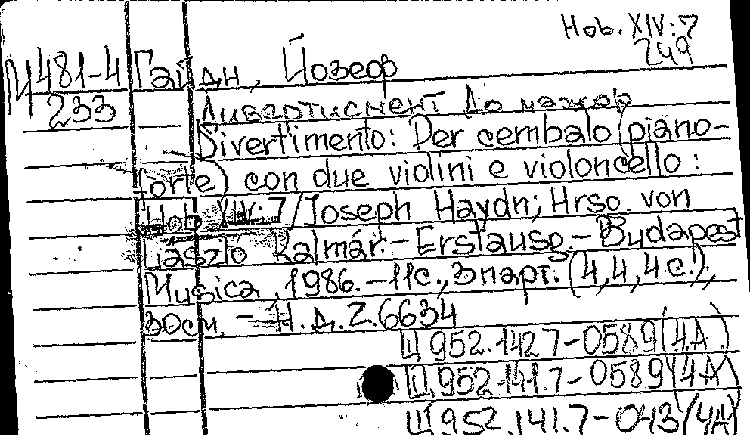 Hob. XIV:7
249
М 481-4 Гайдн, Йозеф
233 Дивертисмент До мажор
Divertimento: Per cembalo (piano-
forte) con due violini e violoncello :
Hob. XIV:7 / Joseph Haydn; Hrsg. von
László Kalmár. – Erstausg. – Budapest
Musica, 1986. – 11с., 3 парт. (4,4,4 с.),
30см. – Н.д. Z.6634
Щ 952.142 7-0589(4А)
Щ 952.141.7-0589(4А)
Щ 952.141.7-043(4А)